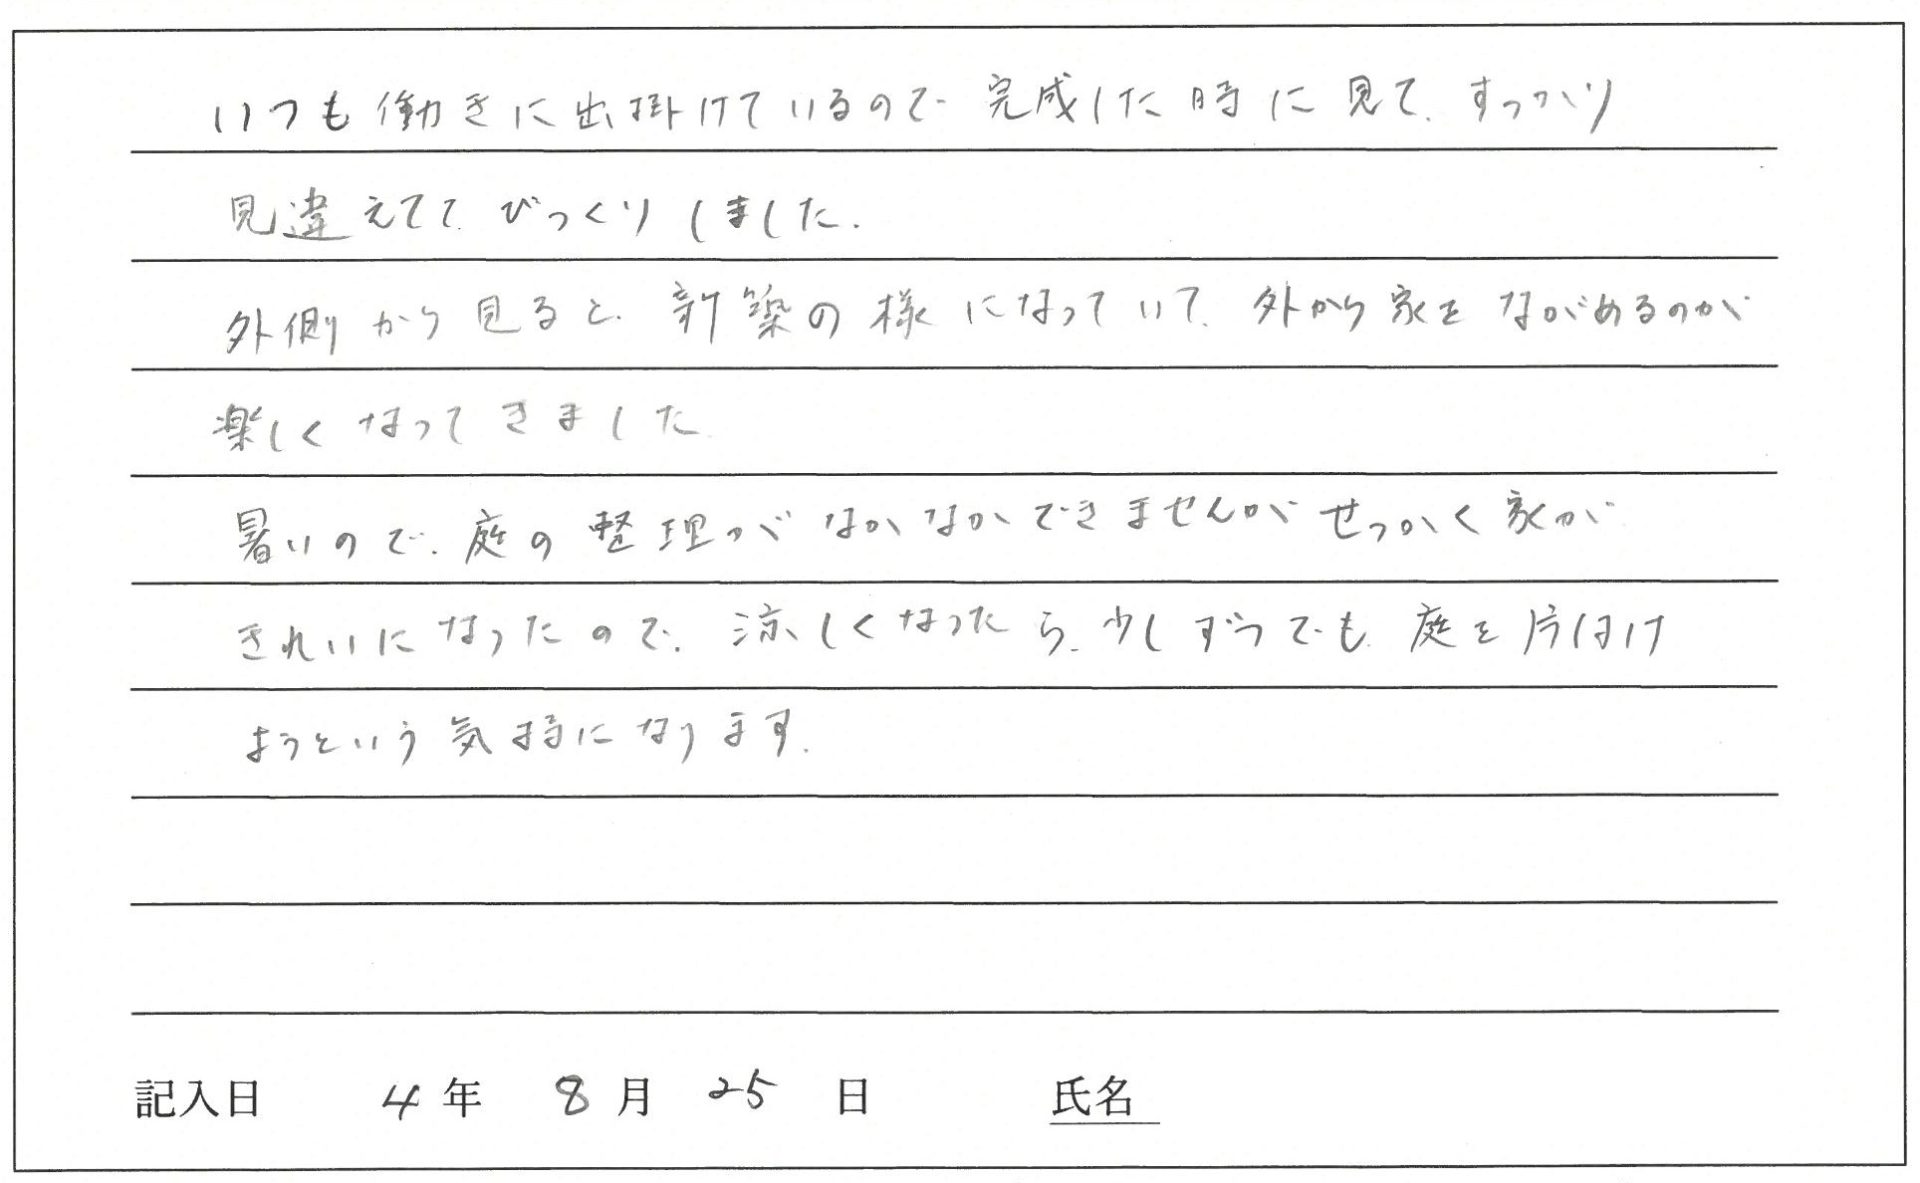 いつも働きに出掛けているので完成した時に見て、すっかり
見違えてて、びっくりしました。
外側から見ると、新築の様になっていて、外から家をながめるのが
楽しくなってきました。
暑いので、庭の整理がなかなかできませんがせっかく家が
きれいになったので、涼しくなったら、少しずつでも、庭を片付け
ようという気持になります。
記入日 4年 8月 25日 氏名